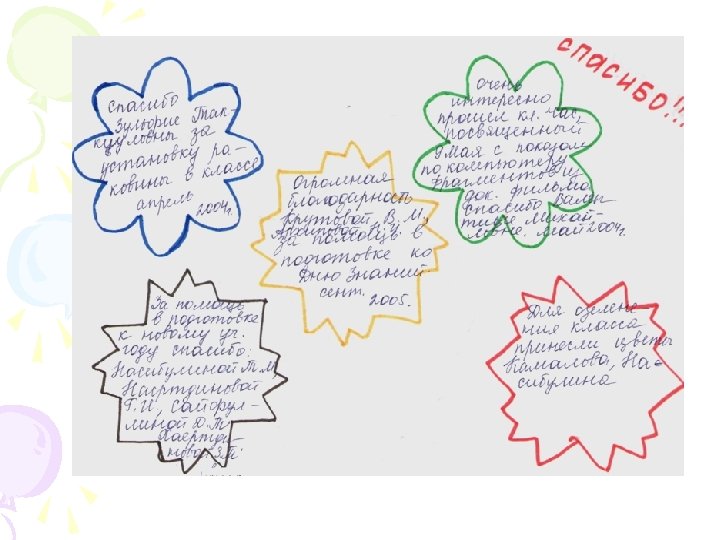 спасибо!!!
Спасибо
Зульфие Так-
за
установку ра-
ковины в классе
апрель
2004г.
очень
интересно
прошел кл. час,
посвященный
9 мая с показом
по компьютеру
фрагментов из
док. фильма
Спасибо Вален
тине Михай-
ловне. Май 2004г.
Огромная
благодарность
Крутовой В. М.,
Архиповой
за помощь в
подготовке ко
Дню Знаний
сент. 2005г.
За помощь
в подготовке
к новому уч.
году спасибо:
Насибулиной Т. М.
Наертдиновой
Г. И., Сайфул-
линой
Хаертди-
новой
Для озелене
ния класса
принесли цветы
Камалова, На-
сибулина